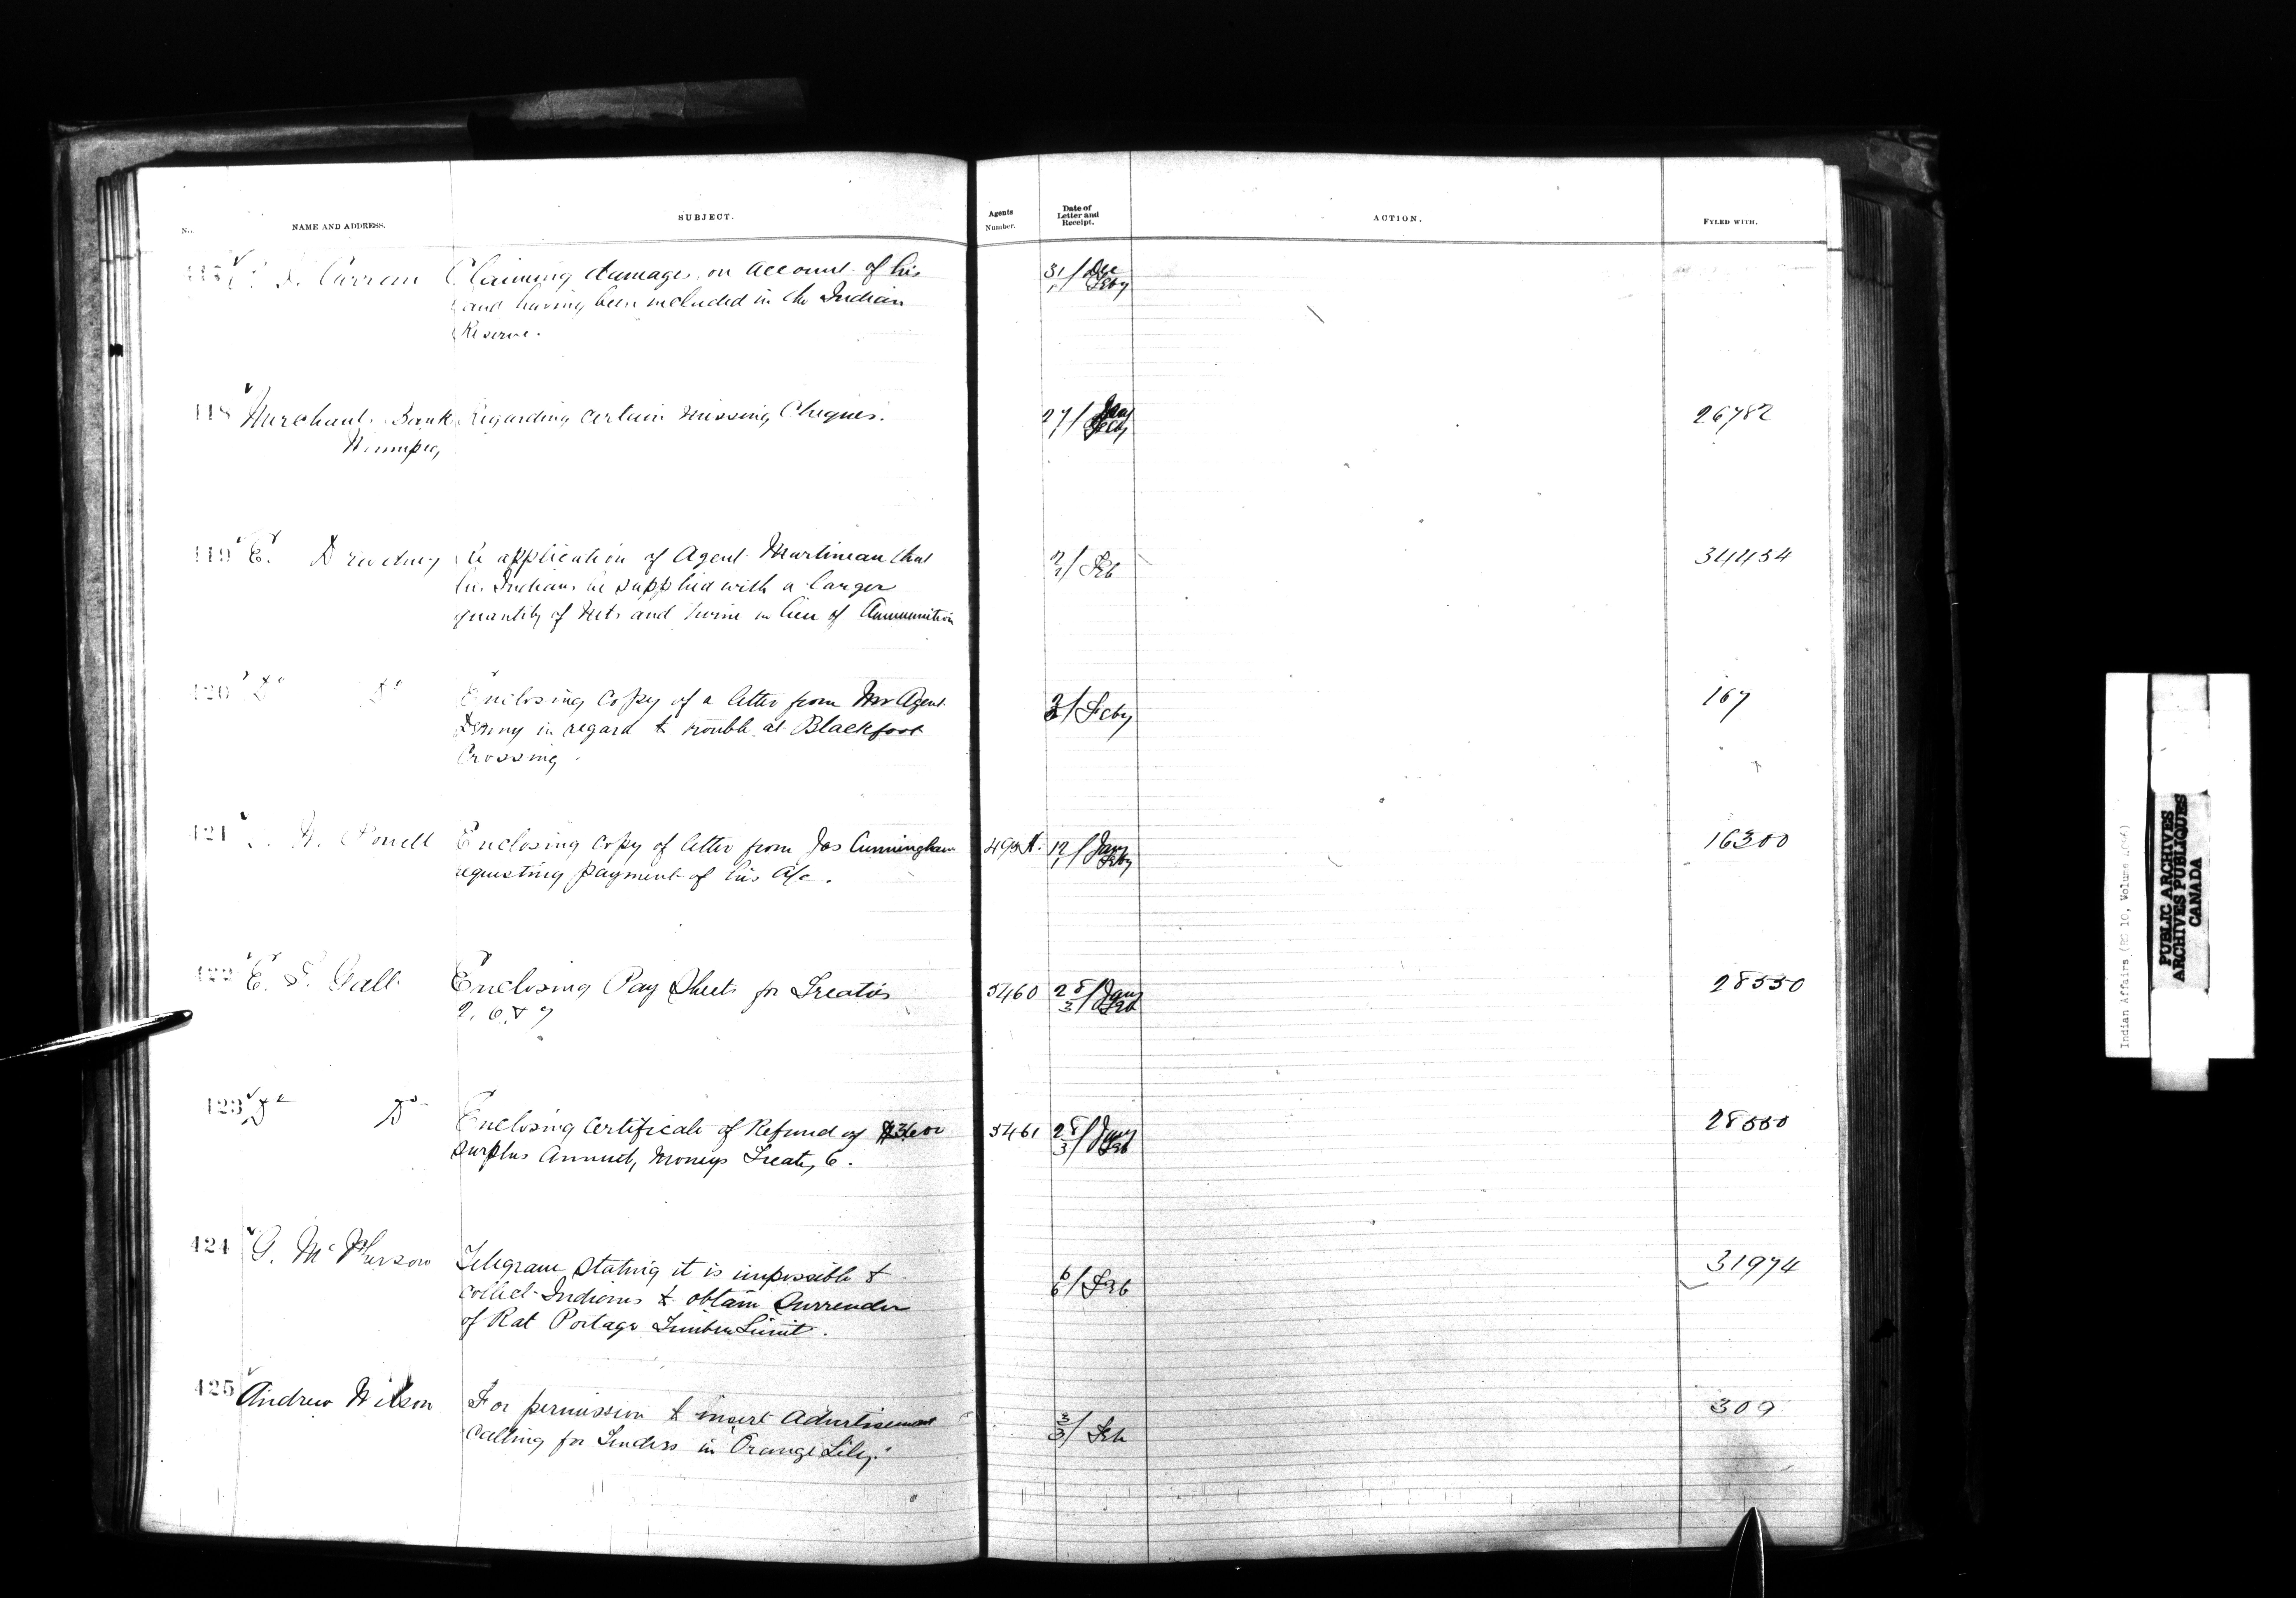 No. NAME AND ADDRESS. SUBJECT. Agents Number. Date of Letter and Receipt. ACTION. FYLED WITH.
J. Curran Claiming damages on account of his 31/1 Dec Feby
land having been included in the Indian
Reserve.
418 Merchants Bank Regarding certain missing Cheques. 27/ 26782
Winnipeg
419 E. Dewdney Re application of Agent Martineau that 2/ Feb 34454
his Indians be supplied with a larger
quantity of Nets and twine in lieu of Ammunition
420 Do Do Enclosing Copy of a letter from Mr Agent 2/ Feby 167
Denny in regard to trouble at Blackfoot
Crossing.
421 W. Powell Enclosing Copy of letter from Jas Cunningham 12/1 Jany Feby 16300
requesting payment of his A/c.
422 E. T. Galt Enclosing Pay Sheets for Treaties 5460 28/3 Jany Feb 28550
2, 6, & 7
423 Do Do Enclosing Certificate of Refund of 5461 28/3 Jany Feb 28550
surplus Annuity Moneys Treaty 6.
424 G. McPherson Telegram stating it is impossible to 6/6 Feb 31974
collect Indians to obtain Surrender
of Rat Portage Timber Limit.
425 Andrew Wilson For permission to insert Advertisement 3/3 Feb 309
calling for Tenders in "Orange Lily."
Indian Affairs (RG 10, Volume
PUBLIC ARCHIVES
ARCHIVES PUBLIQUES
CANADA